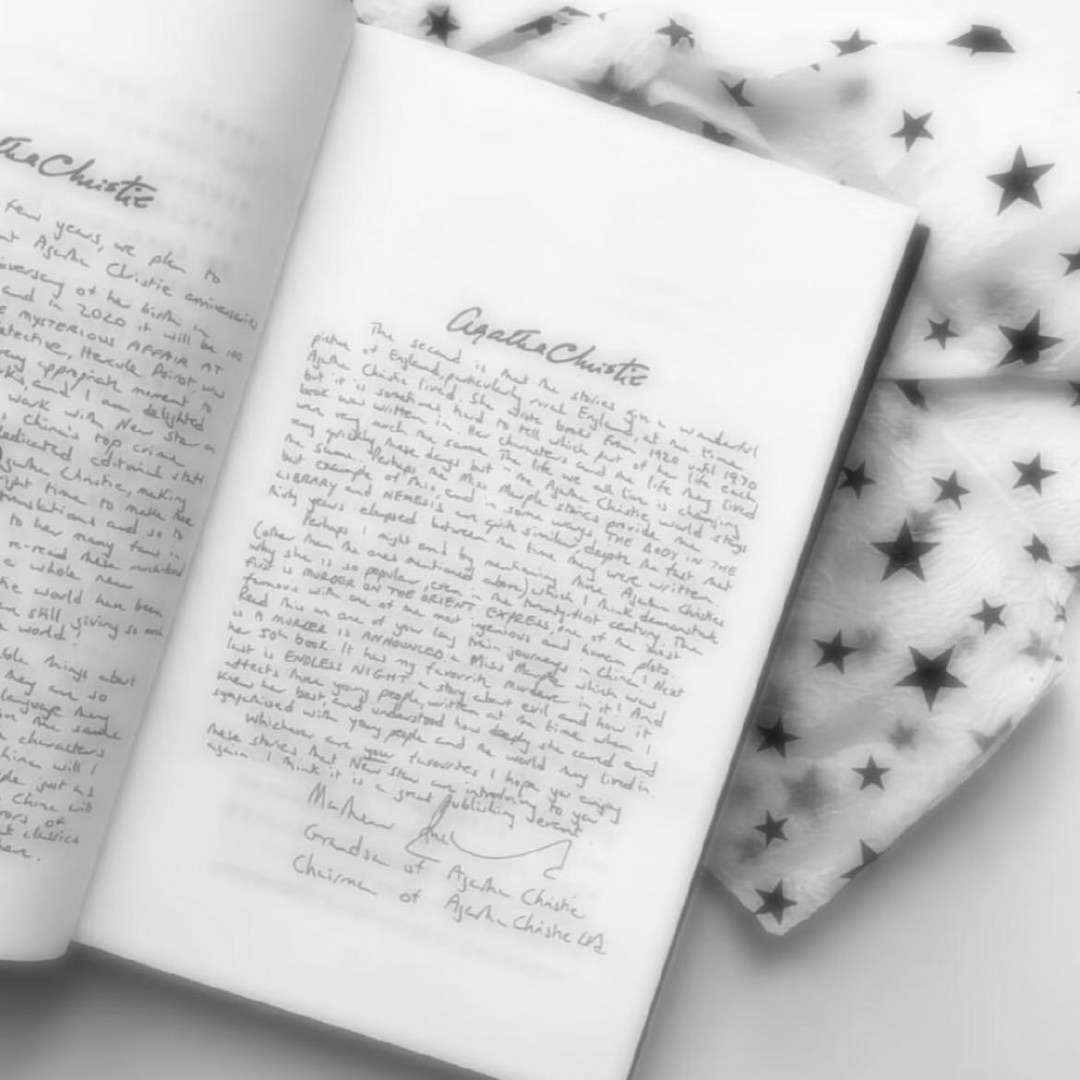 the Christie
few years, we plan to
Agatha Christie anniversaries
of her birth in
and in 2020 it will be 100
MYSTERIOUS AFFAIR AT
detective, Hercule Poirot was
very appropriate moment to
and I am delighted
work with New Star on
China's top crime
dedicated editorial staff
Agatha Christie, making
right time to make these
translations and so to
to her many fans in
re-read these
a whole new
the world have been
are still, giving so much
world!
things about
they are so
language they
in the same
characters
China will
just as
China will
of
classics
here.
Agatha Christie
The second is that the stories give a wonderful
picture of England, particularly rural England, at the time
Agatha Christie lived. She wrote books from 1920 until 1970
but it is sometimes hard to tell which part of her life each
book was written in. Her characters and the life they lived
were very much the same. The life we all live is changing
very quickly these days but in the Agatha Christie world stays
the same. Perhaps the Miss Marple stories provide the
best example of this, and in some ways, THE BODY IN THE
LIBRARY and NEMESIS are quite similar, despite the fact that
thirty years elapsed between the time they were written.
Perhaps I might end by mentioning three Agatha Christies
(other than the ones mentioned above) which I think demonstrate
why she is so popular even in the twenty-first century. The
first is MURDER ON THE ORIENT EXPRESS, one of the most
famous with one of the most ingenious and human plots.
Read this on one of your long train journeys in China! Next
is A MURDER IS ANNOUNCED, a Miss Marple which was
her 50th book. It has my favourite murderer in it! And
last is ENDLESS NIGHT a story about evil and how it
affects three young people, written at the time when I
knew her best, and understood how deeply she cared and
sympathised with young people and the world they lived in.
Whichever are your favourites I hope you enjoy
these stories that New Star are introducing to you
again. I think it is a great publishing event.
Mathew
Grandson of Agatha Christie
Chairman of Agatha Christie Ltd